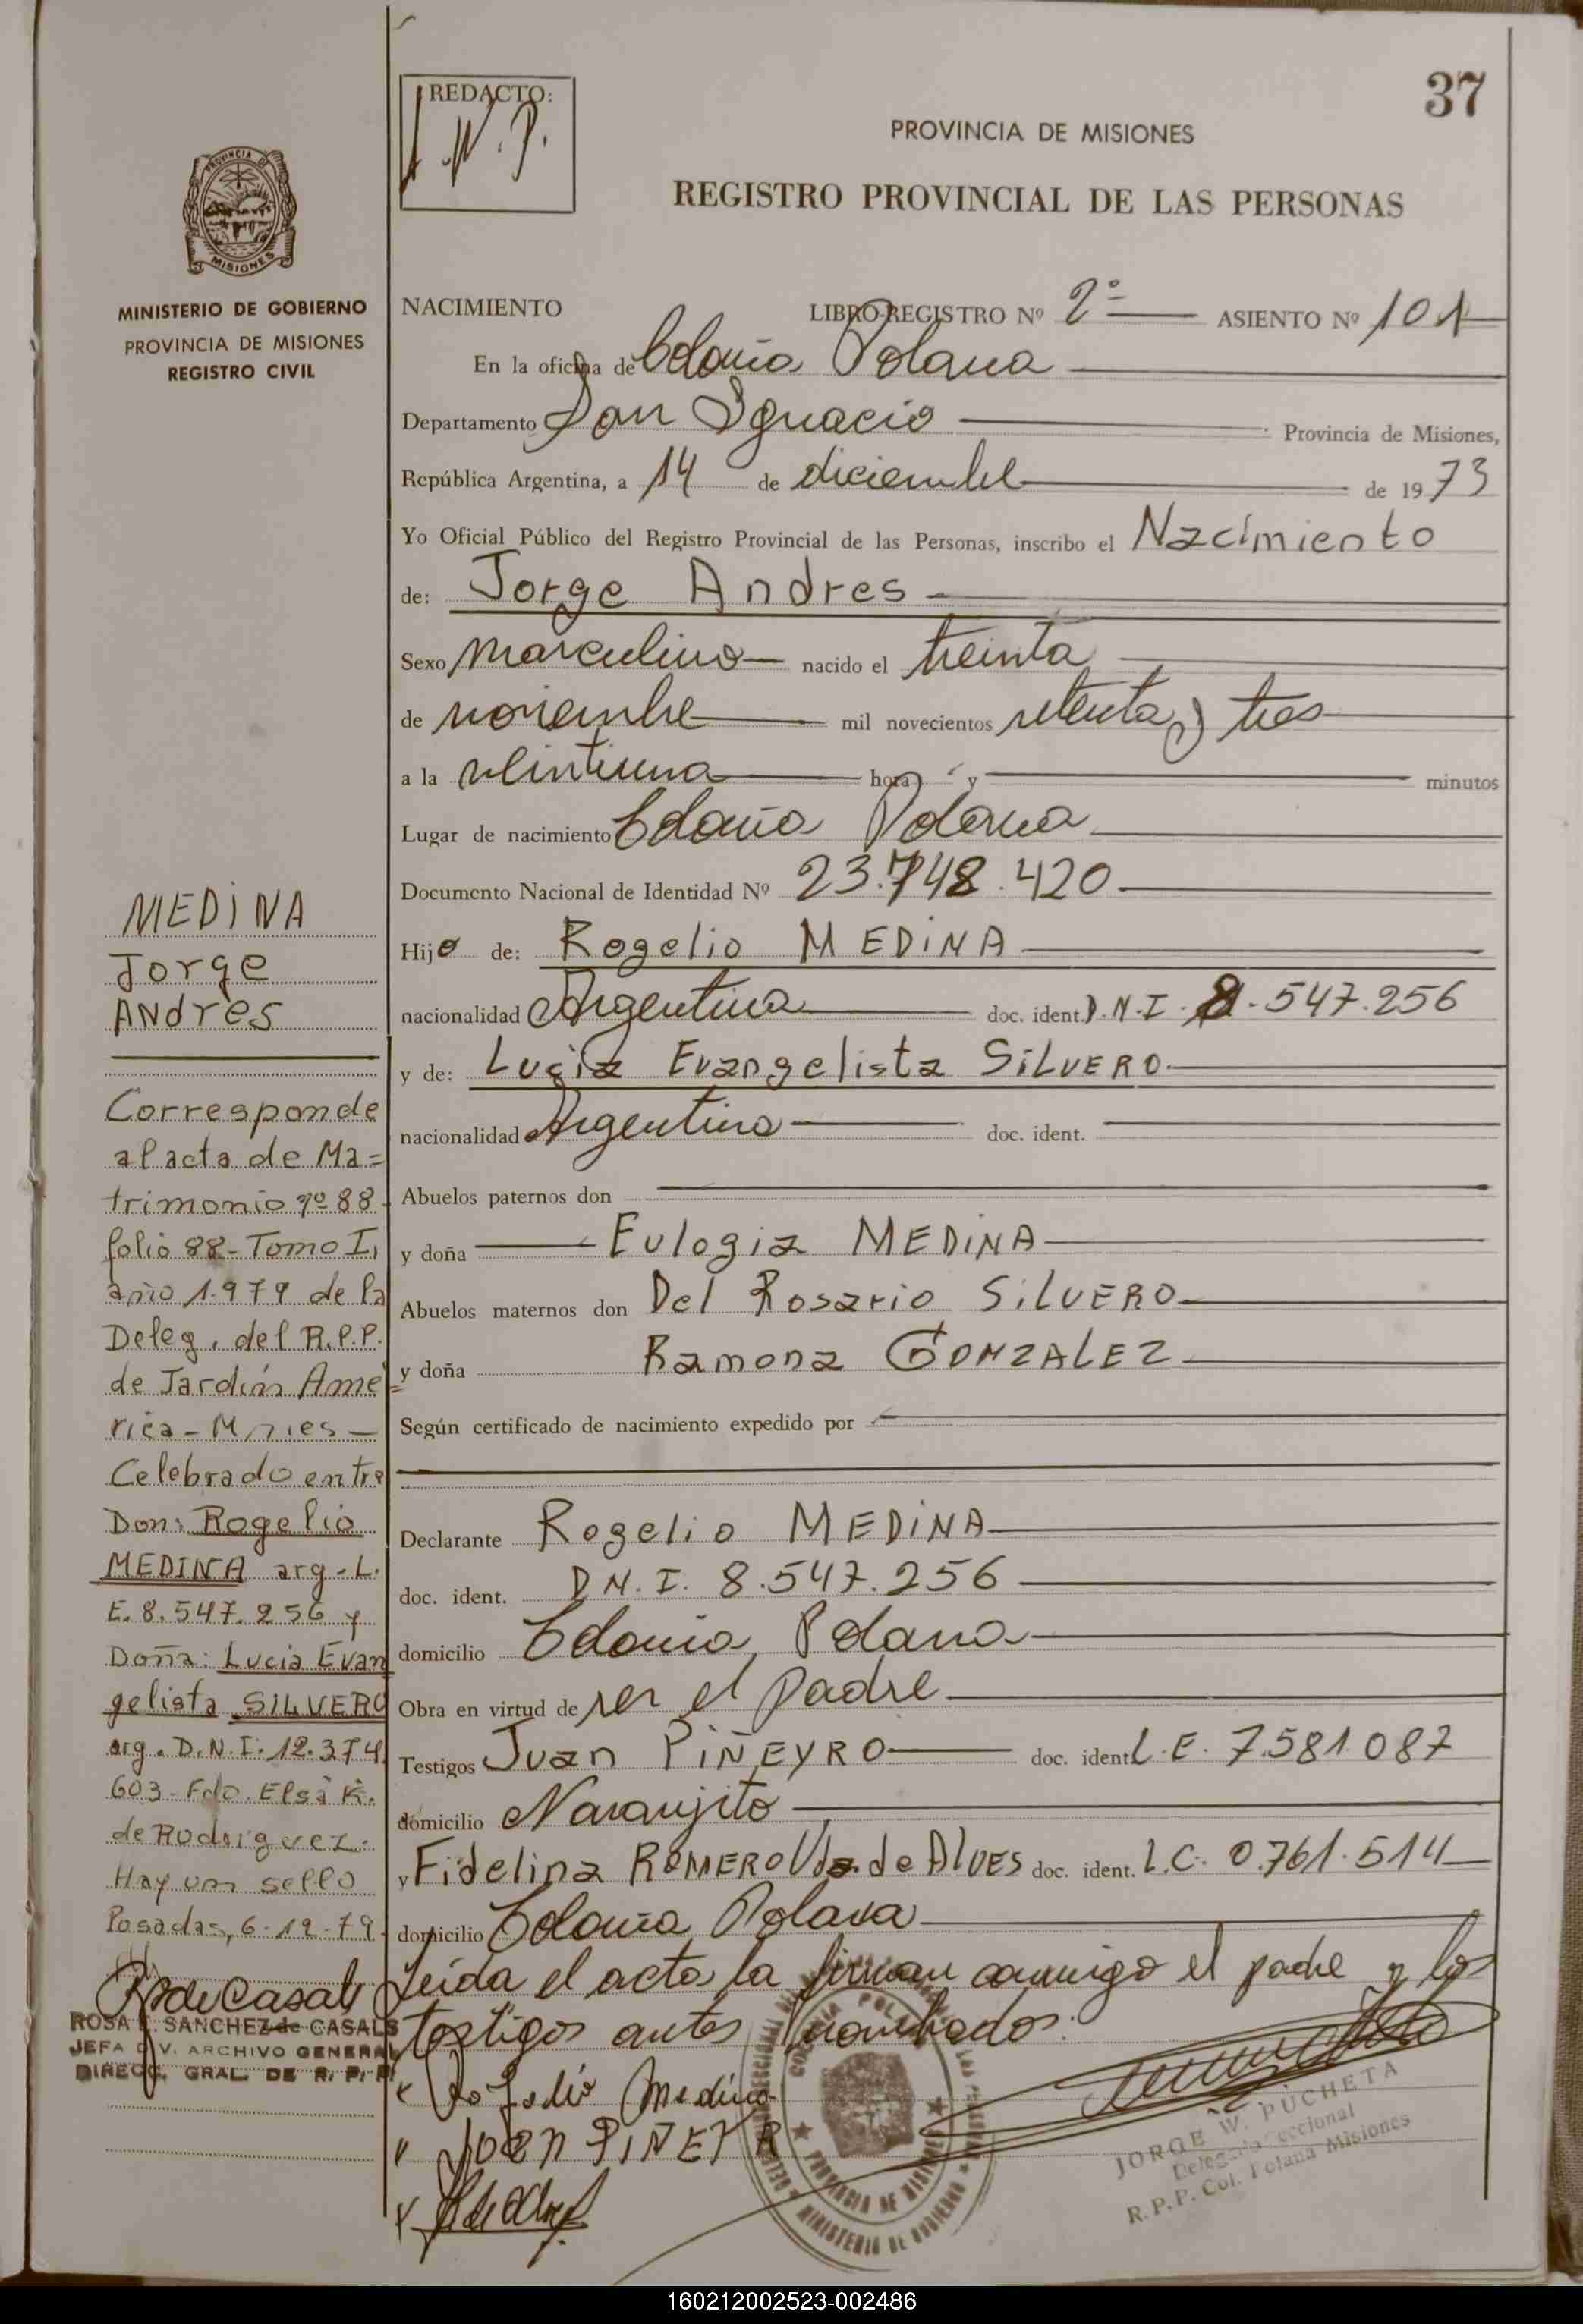 37
REDACTO:
J.W.P.
PROVINCIA DE MISIONES
REGISTRO PROVINCIAL DE LAS PERSONAS
PROVINCIA DE
MISIONES
MINISTERIO DE GOBIERNO
PROVINCIA DE MISIONES
REGISTRO CIVIL
NACIMIENTO LIBRO-REGISTRO Nº 2º ASIENTO Nº 101
En la oficina de Colonia Polana
Departamento San Ignacio Provincia de Misiones,
República Argentina, a 14 de diciembre de 1973
Yo Oficial Público del Registro Provincial de las Personas, inscribo el Nacimiento
de: Jorge Andres
Sexo masculino nacido el treinta
de noviembre mil novecientos setenta y tres
a la veintiuna hora y minutos
Lugar de nacimiento Colonia Polana
Documento Nacional de Identidad Nº 23.748.420
Hijo de: Rogelio MEDINA
nacionalidad Argentina doc. ident. D.N.I. 8.547.256
y de: Lucia Evangelista SILVERO
nacionalidad Argentina doc. ident.
Abuelos paternos don
y doña Eulogia MEDINA
Abuelos maternos don Del Rosario SILVERO
y doña Ramona GONZALEZ
Según certificado de nacimiento expedido por
Declarante Rogelio MEDINA
doc. ident. D.N.I. 8.547.256
domicilio Colonia Polana
Obra en virtud de ser el padre
Testigos Juan PIÑEYRO doc. ident. L.E. 7.581.087
domicilio Naranjito
y Fidelina ROMERO Vda. de ALVES doc. ident. L.C. 0.761.514
domicilio Colonia Polana
Leída el acta la firman conmigo el padre y los
testigos antes nombrados.
Rogelio Medina
JUAN PIÑEYR
MEDINA
Jorge
ANdres
Corresponde
al acta de Ma=
trimonio nº 88
folio 88- Tomo I,
año 1.979 de la
Deleg. del R.P.P.
de Jardín Amé=
rica - Mnes -
Celebrado entre
Don: Rogelio
MEDINA arg. L.
E. 8.547.256 y
Doña: Lucia Evan
gelista SILVERO
arg. D.N.I. 12.374.
603 - Fdo. Elsa K.
de Rodriguez.
Hay un sello
Posadas, 6-12-79.
R S de Casals
ROSA SANCHEZ de CASALS
JEFA DIV. ARCHIVO GENERAL
DIRECC. GRAL. DE R. P. P.
COLONIA POLANA
PROVINCIA DE MISIONES
MINISTERIO DE GOBIERNO
JORGE W. PUCHETA
Delegado Seccional
R.P.P. Col. Polana Misiones
160212002523-002486